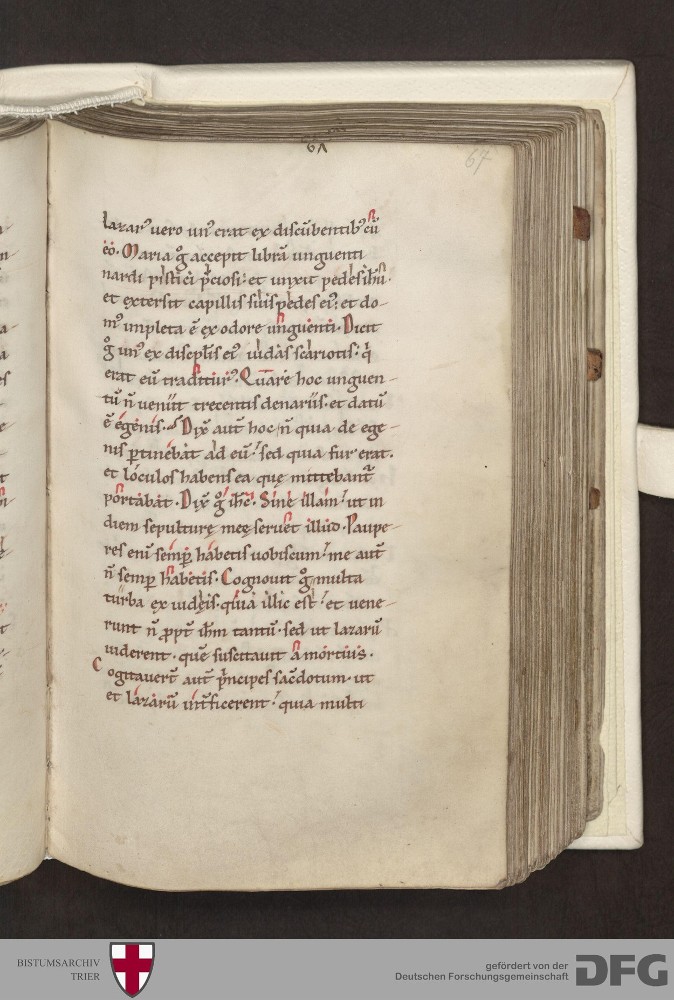 67
lazarꝰ vero unꝰ erat ex discūbentibꝰ cū
eo. Maria gͦ accepit librā unguenti
nardi pistici p̄ciosi. et unxit pedes ihū.
et extersit capillis suis pedes eiꝰ. et do-
mꝰ impleta ē ex odore unguenti. Dicit
gͦ unꝰ ex discipl̄is eiꝰ iudas scariotis. qͥ
erat eū traditurꝰ. Quare hoc unguen-
tū n̄ veniit trecentis denariis. et datū
ē egenis. Dix̄ aut̄ hoc n̄ quia de ege-
nis ꝑtinebat ad eū. sed quia fur erat.
et loculos habens ea quę mittebant᷑
portabat. Dix̄ gͦ ihc̄. Sine illam. ut in
diem sepulturę meę seruet illud. Paupe-
res enī semꝑ habetis uobiscum. me aut̄
n̄ semꝑ habetis. Cognouit gͦ multa
turba ex iudęis. quia illic est. et uene-
runt n̄ ꝓpt̄ ihm̄ tantū. sed ut lazarū
uiderent. quē suscitauit a mortuis.
Cogitauer̄t aut̄ pͥncipes sac̄dotum. ut
et lazarū int̄ficerent. quia multi
BISTUMSARCHIV
TRIER
gefördert von der
Deutschen Forschungsgemeinschaft
DFG